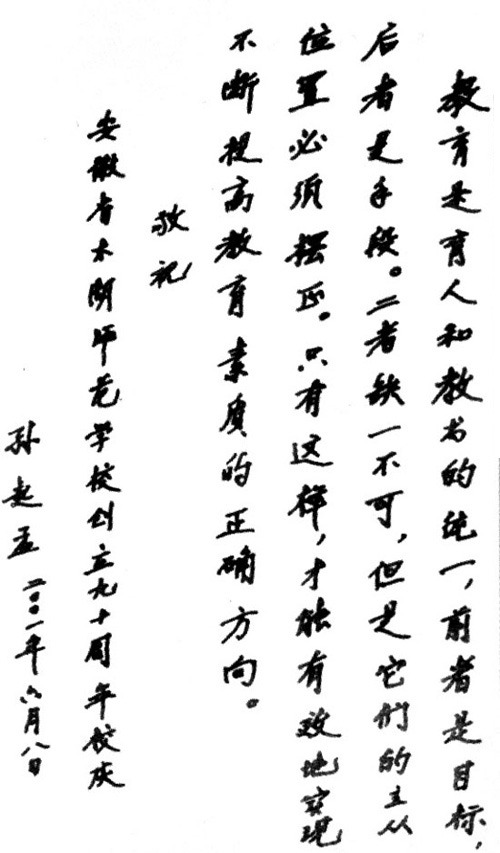 教育是育人和教书的统一，前者是目标，
后者是手段。二者缺一不可，但是它们的主从
位置必须摆正。只有这样，才能有效地实现
不断提高教育素质的正确方向。
敬祝
安徽省木閧师范学校创立九十周年校庆
孙起孟 二〇〇一年六月八日